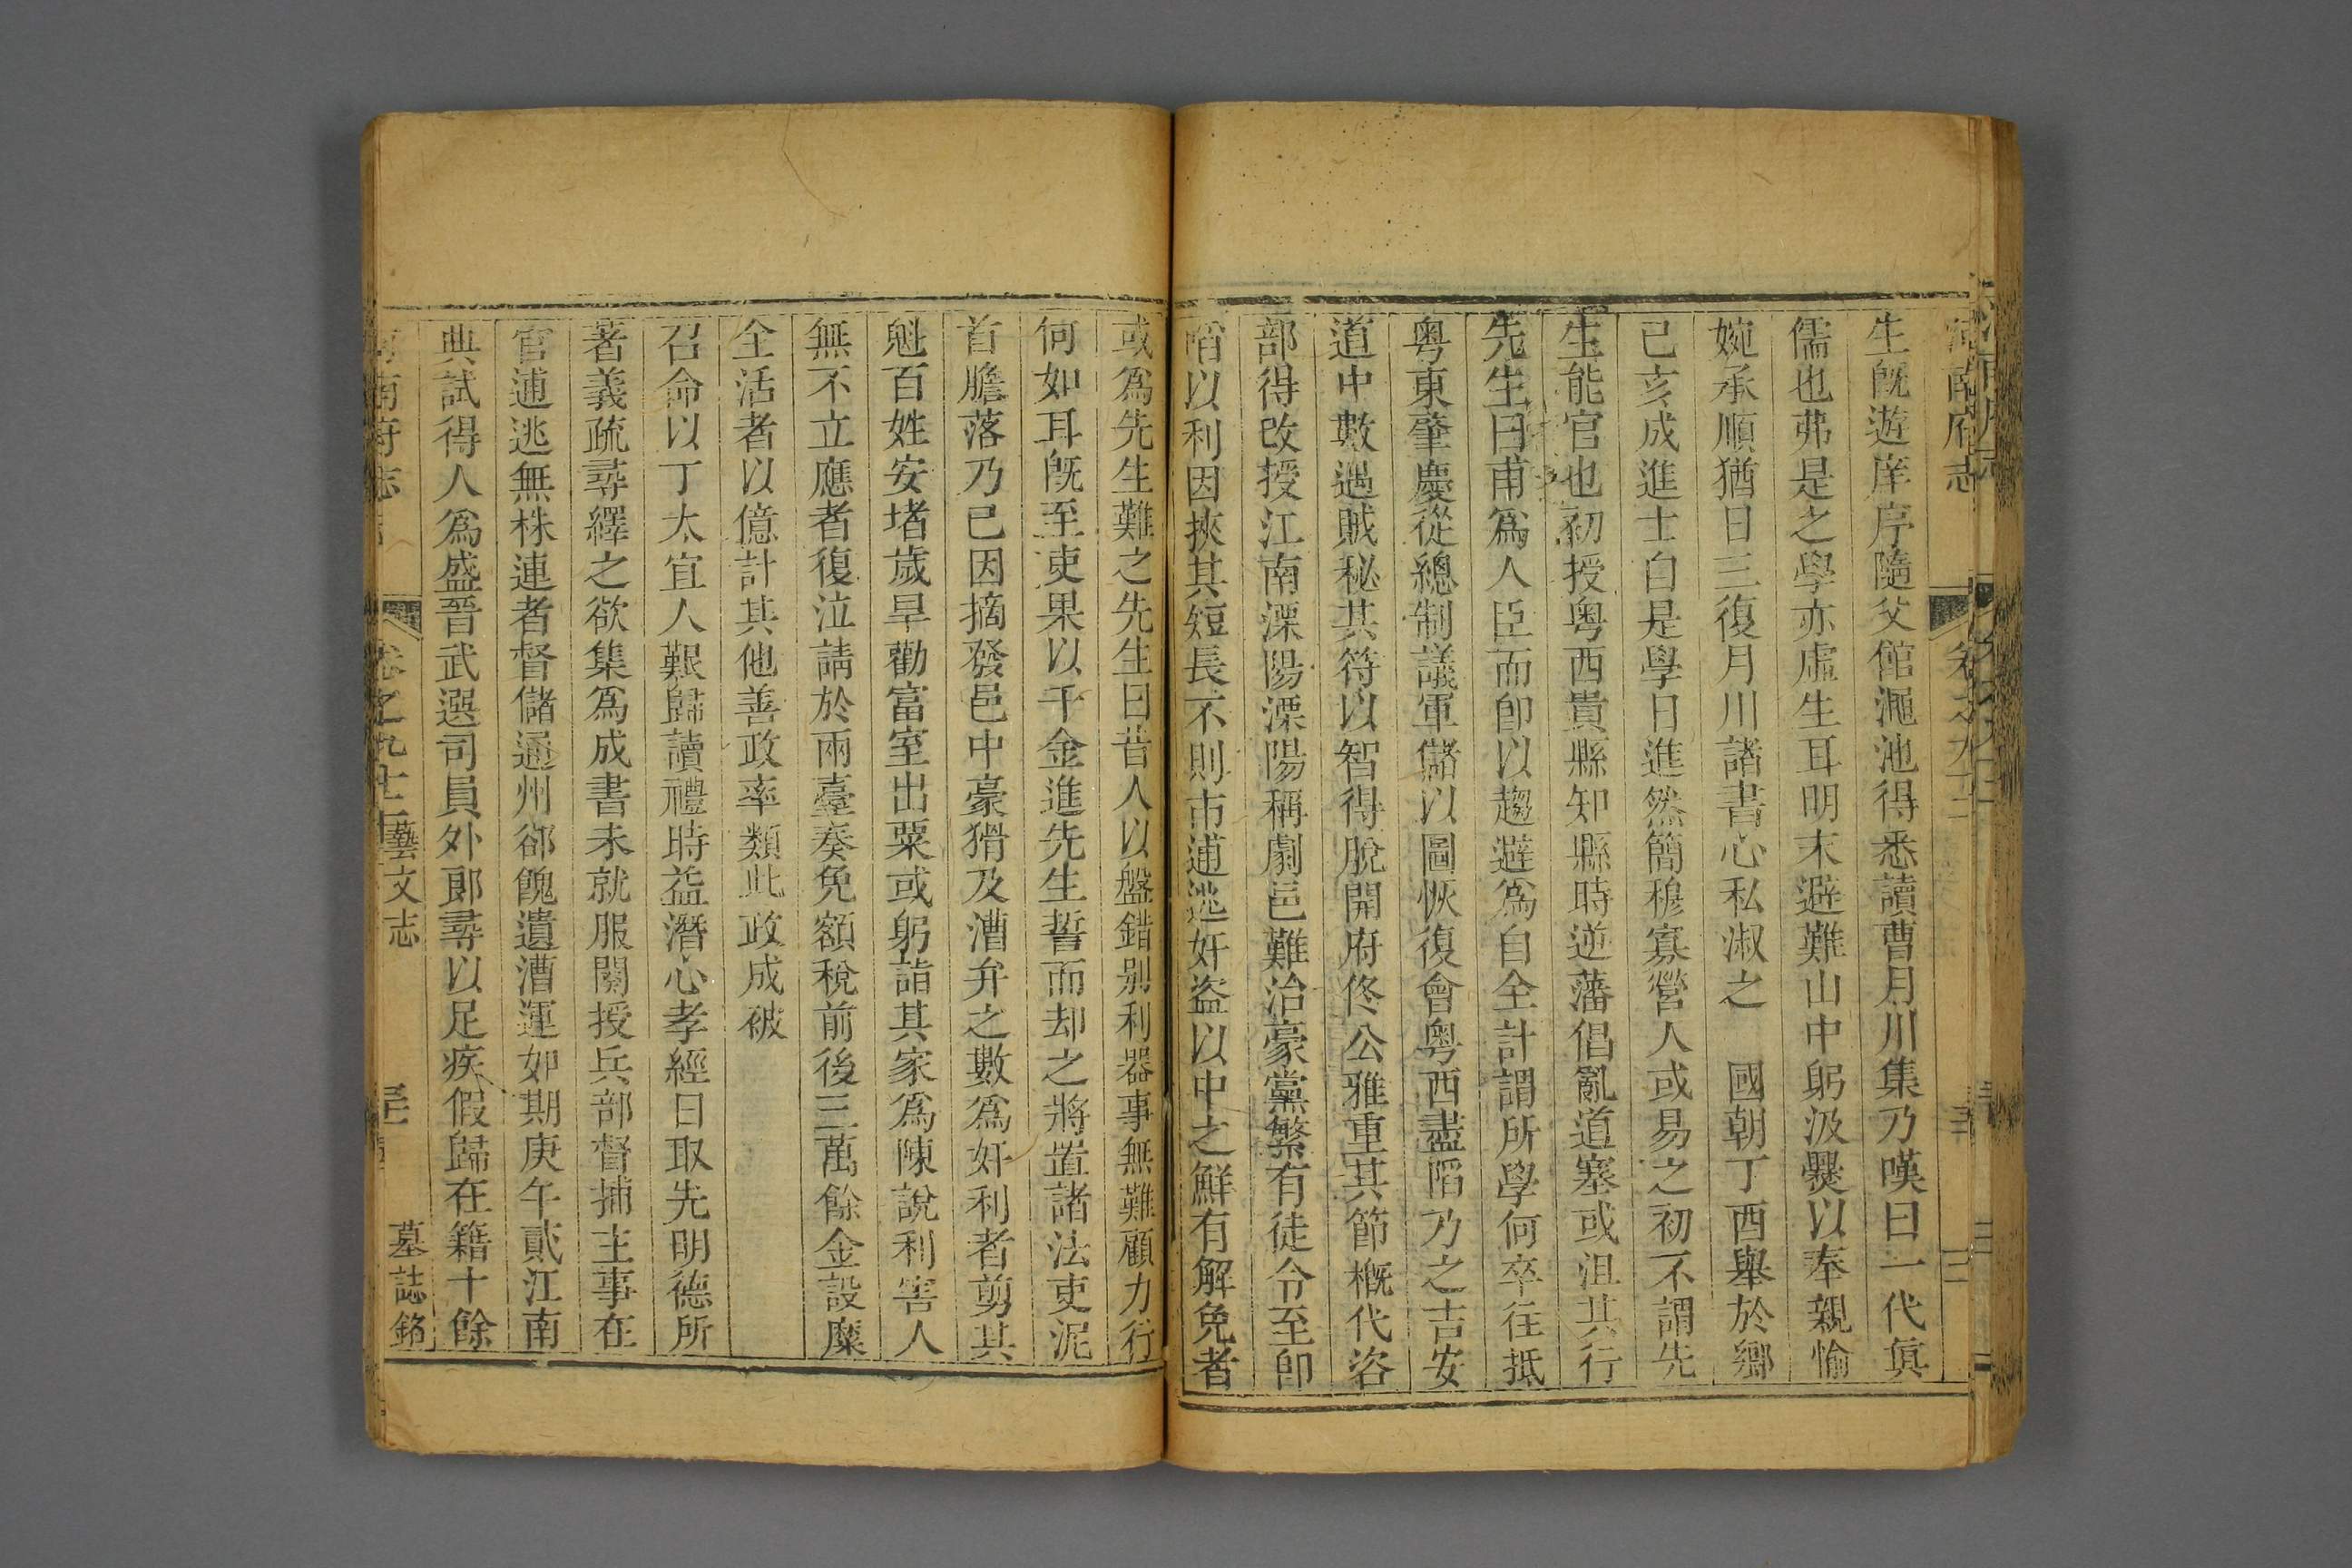 河南府志
卷之九十二
生旣遊庠序隨父館澠池得悉讀曹月川集乃嘆曰一代眞
儒也弗是之學亦虛生耳明末避難山中躬汲爨以奉親愉
婉承順猶日三復月川諸書心私淑之　國朝丁酉舉於鄉
己亥成進士自是學日進然簡穆寡營人或易之初不謂先
生能官也初授粤西貴縣知縣時逆藩倡亂道塞或沮其行
先生曰甫爲人臣而卽以趨避爲自全計謂所學何卒往抵
粤東肇慶從總制議軍儲以圖恢復會粤西盡陷乃之吉安
道中數遇賊秘其符以智得脫開府佟公雅重其節槪代咨
部得改授江南溧陽溧陽稱劇邑難治豪黨繁有徒令至卽
啗以利因挾其短長不則市逋逃奸盜以中之鮮有解免者
或爲先生難之先生曰昔人以盤錯别利器事無難顧力行
何如耳旣至吏果以千金進先生誓而却之將置諸法吏泥
首膽落乃已因摘發邑中豪猾及漕弁之數爲奸利者剪其
魁百姓安堵歲旱勸富室出粟或躬詣其家爲陳說利害人
無不立應者復泣請於兩臺奏免額稅前後三萬餘金設糜
全活者以億計其他善政率類此政成被
召命以丁太宜人艱歸讀禮時益潛心孝經日取先明德所
著義疏尋繹之欲集爲成書未就服闋授兵部督捕主事在
官逋逃無株連者督儲通州郤餽遺漕運如期庚午貳江南
典試得人爲盛晉武選司員外郎尋以足疾假歸在籍十餘
南府志
卷之九十二
藝文志
墓誌銘